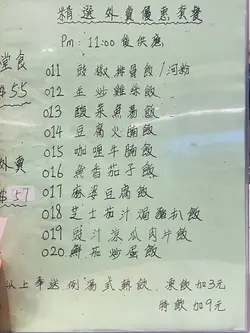 精選外賣優惠套餐
Pm: 11:00 後供應
堂食
$55
外賣
$57
011 豉椒排骨飯/河粉
012
013 酸菜魚湯飯
014 豆腐火腩飯
015 咖喱牛腩飯
016 魚香茄子飯
017 麻婆豆腐飯
018 芝士茄汁焗豬扒飯
019 豉汁涼瓜肉片飯
020. 鮮茄炒蛋飯
以上奉送例湯或熱飲, 凍飲加3元
特飲加9元